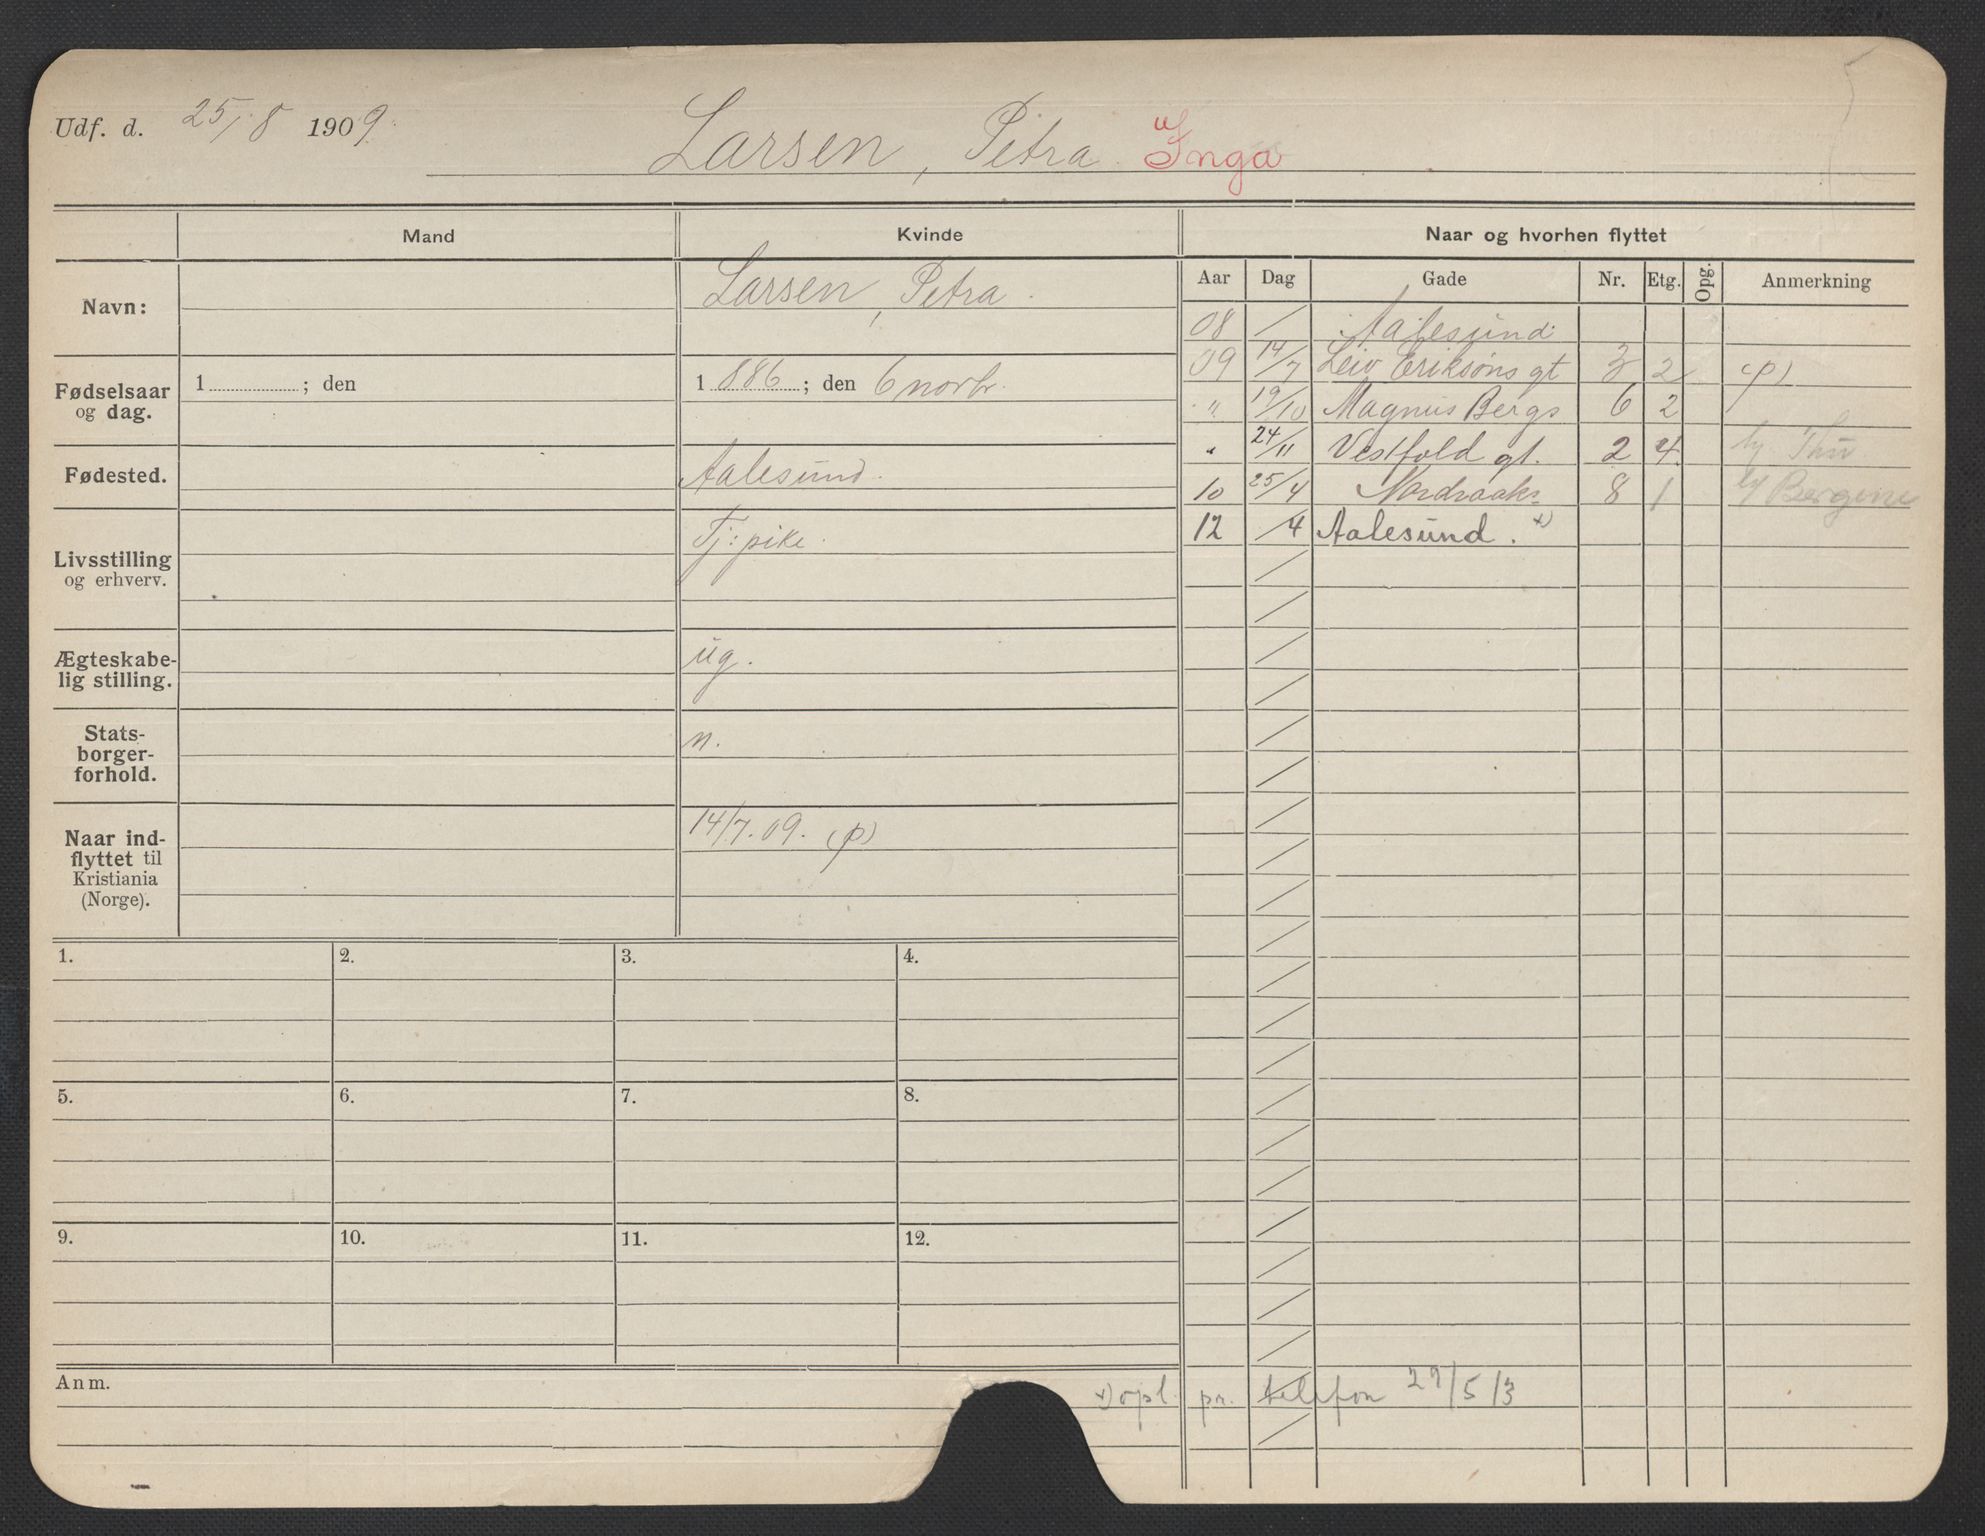 Udf. d. 25/8 1909.
Larsen, Petra Inga
Mand
Kvinde
Naar og hvorhen flyttet
Navn:
Larsen, Petra.
Fødselsaar og dag.
1 ............ ; den
1 886 ; den 6 novbr.
Fødested.
Aalesund.
Livsstilling og erhverv.
Tj: pike.
Ægteskabe-
lig stilling.
ug.
Stats-
borger-
forhold.
n.
Naar ind-
flyttet til
Kristiania
(Norge).
14/7.09. (p)
Aar Dag Gade Nr. Etg. Opg. Anmerkning
08 / Aalesund.
09 14/7 Leiv Eriksøns gt 3 2 (p)
" 19/10 Magnus Bergs 6 2
" 24/11 Vestfold gt. 2 4. hj Thu
10 25/4 Nordraaks= 8 1 hj Bergene
12 /4 Aalesund. x)
1. 2. 3. 4.
5. 6. 7. 8.
9. 10. 11. 12.
Anm.
x) opl. pr. telefon 29/5 13